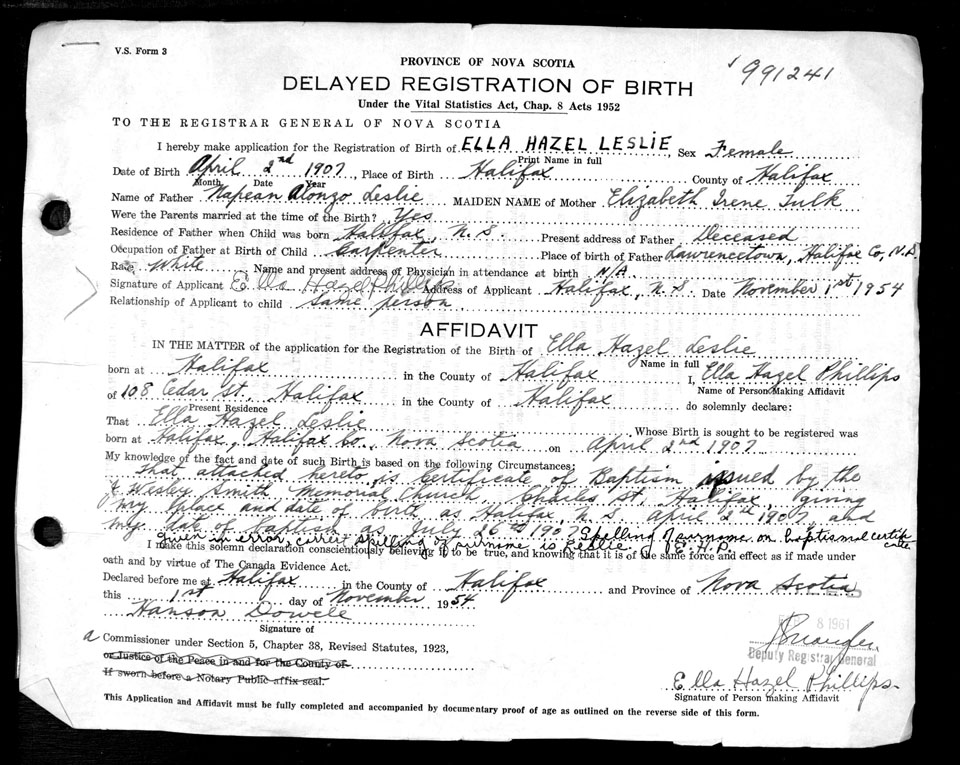 V.S. Form 3
991241
PROVINCE OF NOVA SCOTIA
DELAYED REGISTRATION OF BIRTH
Under the Vital Statistics Act, Chap. 8 Acts 1952
TO THE REGISTRAR GENERAL OF NOVA SCOTIA
I hereby make application for the Registration of Birth of ELLA HAZEL LESLIE, Sex Female
Print Name in full
Date of Birth April 2nd 1907, Place of Birth Halifax County of Halifax
Month Date Year
Name of Father Napean Alonzo Leslie MAIDEN NAME of Mother Elizabeth Irene Tulk
Were the Parents married at the time of the Birth? Yes
Residence of Father when Child was born Halifax, N.S. Present address of Father Deceased
Occupation of Father at Birth of Child Carpenter Place of birth of Father Lawrencetown, Halifax Co, N.S.
Race White Name and present address of Physician in attendance at birth N/A
Signature of Applicant Ella Hazel Phillips Address of Applicant Halifax, N.S. Date November 1st 1954
Relationship of Applicant to child same person
AFFIDAVIT
IN THE MATTER of the application for the Registration of the Birth of Ella Hazel Leslie
Name in full
born at Halifax in the County of Halifax I, Ella Hazel Phillips
Name of Person Making Affidavit
of 108 Cedar St., Halifax in the County of Halifax do solemnly declare:
Present Residence
That Ella Hazel Leslie Whose Birth is sought to be registered was
born at Halifax, Halifax Co., Nova Scotia on April 2nd 1907
My knowledge of the fact and date of such Birth is based on the following Circumstances:
That attached hereto is certificate of Baptism issued by the
J Wesley Smith Memorial Church, Charles St, Halifax, giving
my place and date of birth as Halifax, N.S. April 2nd 1907 and
my date of baptism as July 26th Spelling of surname on baptismal certificate
given in error, correct spelling of surname is Leslie. E.H.P.
I make this solemn declaration conscientiously believing it to be true, and knowing that it is of the same force and effect as if made under
oath and by virtue of The Canada Evidence Act.
Declared before me at Halifax in the County of Halifax and Province of Nova Scotia
this 1st day of November 1954
Hanson Dowell
Signature of
8 1961
a Commissioner under Section 5, Chapter 38, Revised Statutes, 1923,
Deputy Registrar General
or Justice of the Peace in and for the County of
If sworn before a Notary Public affix seal.
Ella Hazel Phillips
Signature of Person making Affidavit
This Application and Affidavit must be fully completed and accompanied by documentary proof of age as outlined on the reverse side of this form.